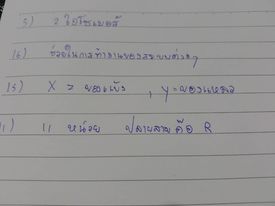 3) 2 ไอโซเมอร์
16) ช่วยในการทำงานของระบบต่างๆ
15) X = ของแข็ง , y = ของเหลว
11) 11 หน่วย ปลายสายคือ R